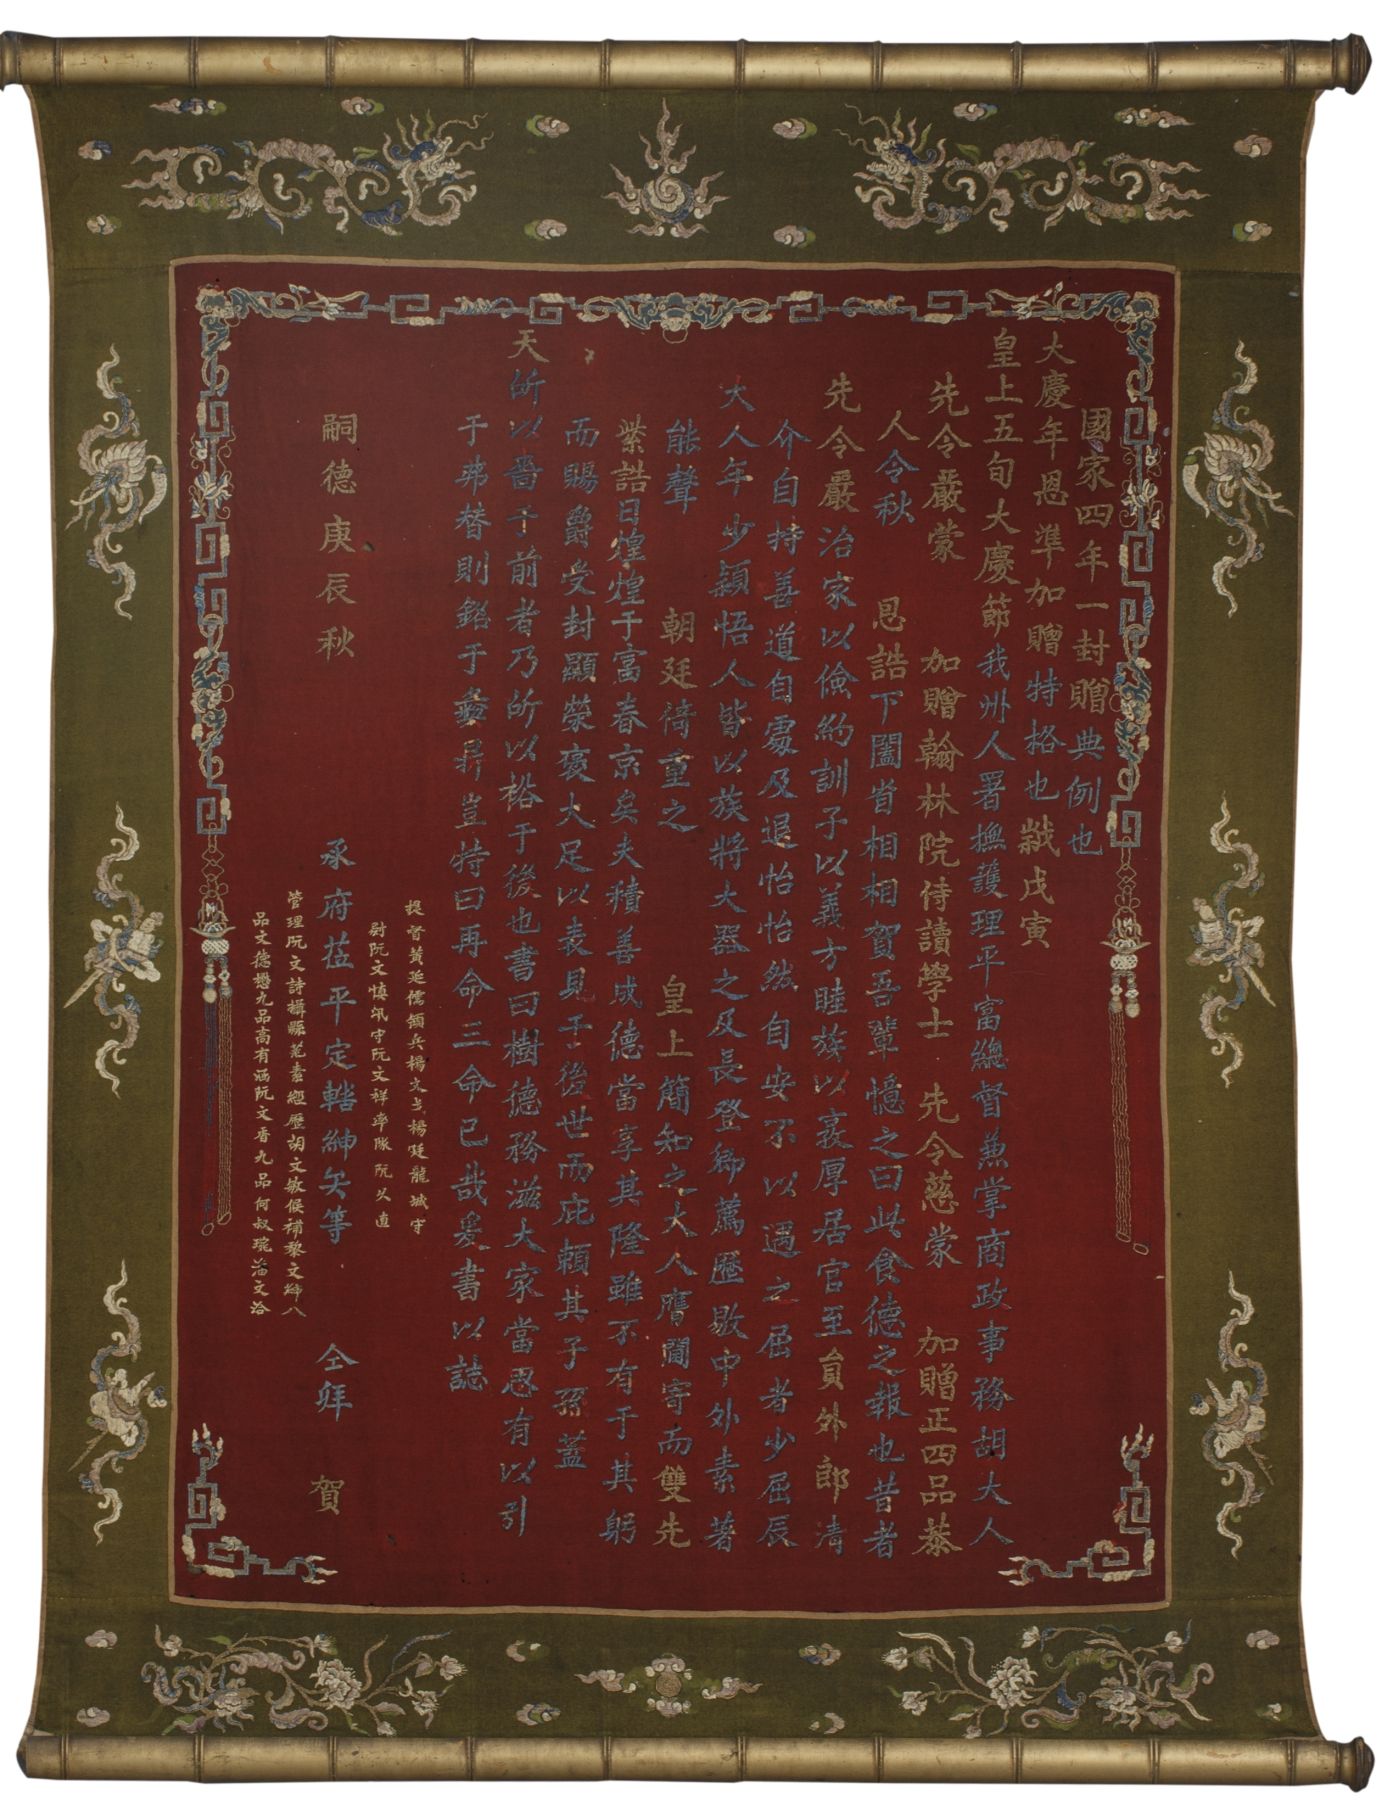 國家四年一封贈典例也
大慶年恩準加贈特格也歲戊寅
皇上五旬大慶節我州人署撫護理平富總督兼掌商政事務胡大人
先令嚴蒙 加贈翰林院侍讀學士 先令慈蒙 加贈正四品恭
人令秋 恩誥下闔省相相賀吾輩憶之曰此食德之報也昔者
先令嚴治家以儉約訓子以義方睦族以衮厚居官至員外郎清
介自持善道自處及退怡怡然自安不以遇之屈者少屈辰
大人年少穎悟人皆以族將大器之及長登鄉薦歷敭中外素著
能聲 朝廷倚重之 皇上簡知之大人膺閫寄而雙先
紫誥日煌煌于富春京矣夫積善成德當享其隆雖不有于其躬
而賜爵受封顯榮褒大足以表見于後世而庇賴其子孫蓋
天所以嗇于前者乃所以裕于後也書曰樹德務滋大家當思有以引
于弗替則銘于彝鼎豈特曰再命三命已哉爰書以誌
提督黃廷儒領兵楊文 楊廷龍城守
尉阮文慎 守阮文祥率隊阮 直
嗣德庚辰秋 承府莅平定轄紳矢等 仝拜 賀
管理阮文詩攝縣范素經歷胡文敏候補黎文 八
品文德懋九品高有涵阮文香九品何叔 潘文洽